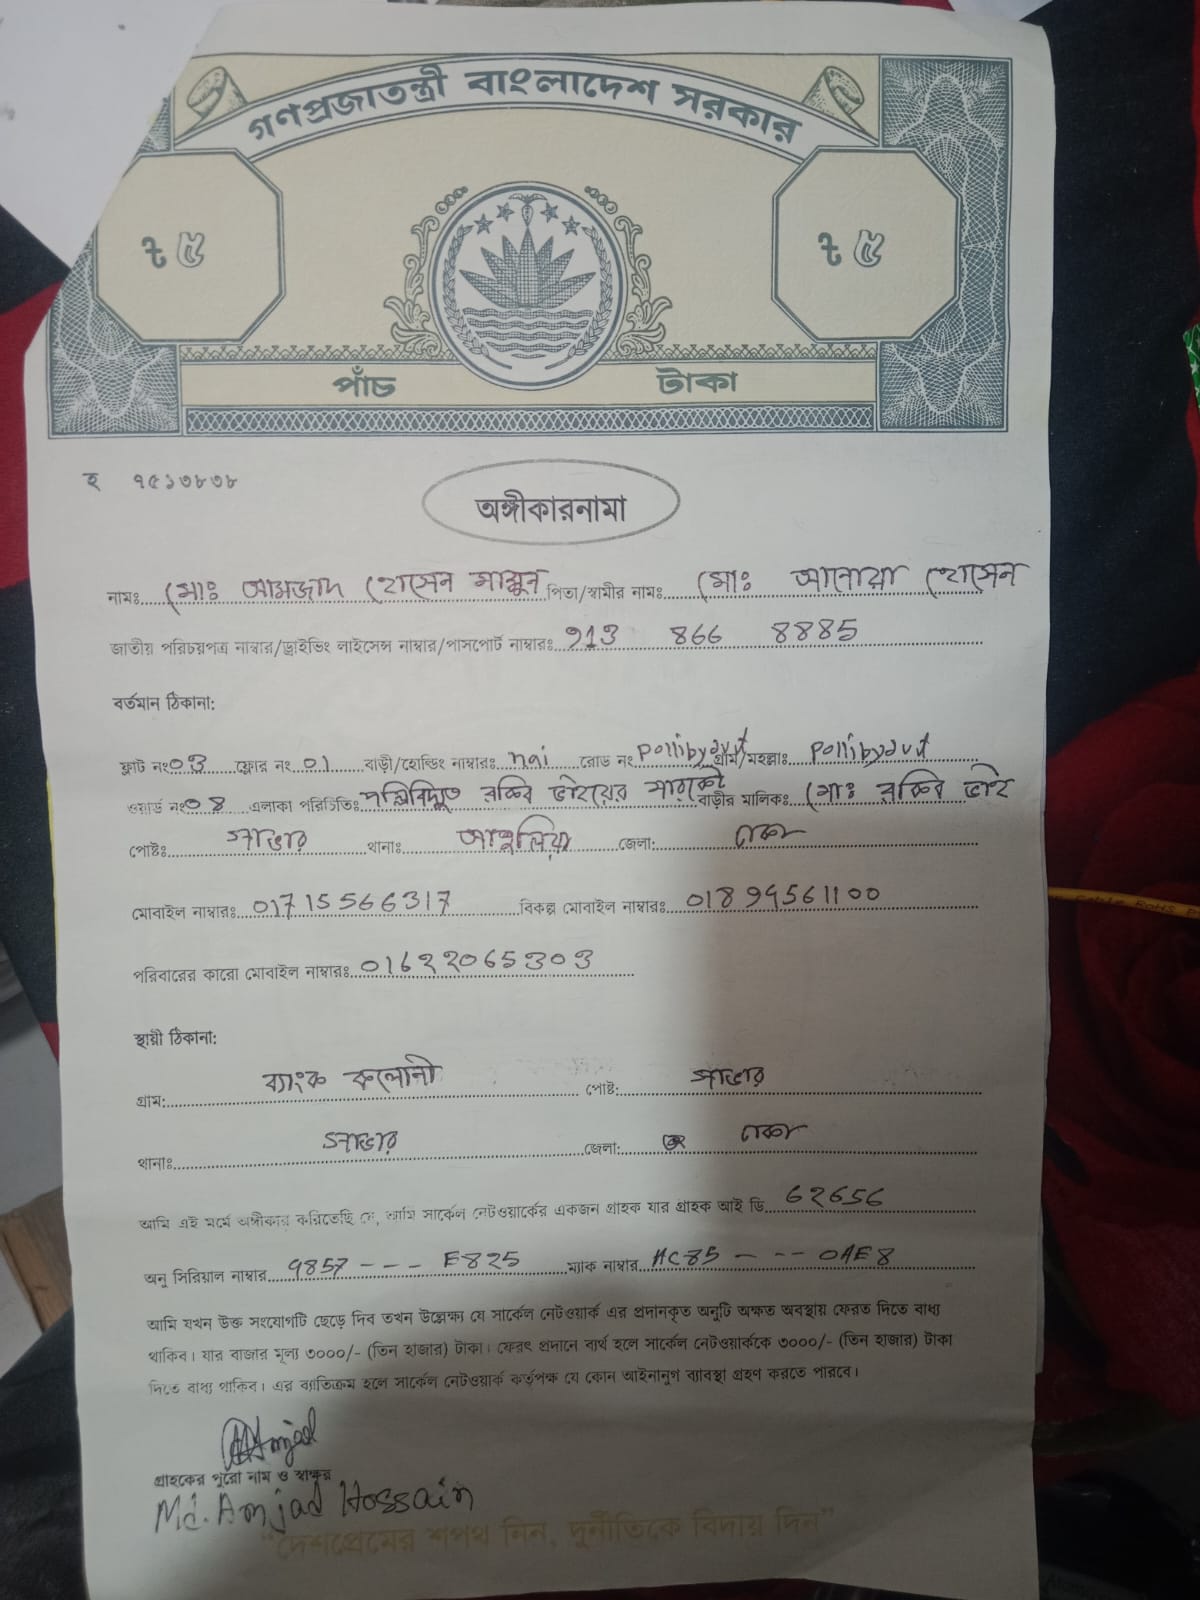 গণপ্রজাতন্ত্রী বাংলাদেশ সরকার
৳ ৫ ৳ ৫
পাঁচ টাকা
হ ৭৫১৩৮৩৮
অঙ্গীকারনামা
নামঃ মোঃ আমজাদ হোসেন মামুন পিতা/স্বামীর নামঃ মোঃ আনোয়া হোসেন
জাতীয় পরিচয়পত্র নাম্বার/ড্রাইভিং লাইসেন্স নাম্বার/পাসপোর্ট নাম্বারঃ 913 866 8885
বর্তমান ঠিকানা:
ফ্লাট নং 03 ফ্লোর নং 01 বাড়ী/হোল্ডিং নাম্বারঃ nai রোড নং pollibyd ut গ্রাম/মহল্লাঃ pollibyd ut
ওয়ার্ড নং 08 এলাকা পরিচিতিঃ পল্লিবিদ্যুত রকিব ভাইয়ের মারকেট বাড়ীর মালিকঃ মোঃ রকিব ভাই
পোষ্টঃ সাভার থানাঃ আশুলিয়া জেলা: ঢাকা
মোবাইল নাম্বারঃ 01715566317 বিকল্প মোবাইল নাম্বারঃ 01899561100
পরিবারের কারো মোবাইল নাম্বারঃ 01622065303
স্থায়ী ঠিকানা:
গ্রাম: ব্যাংক কলোনী পোষ্ট: সাভার
থানাঃ সাভার জেলা: ঢাকা
আমি এই মর্মে অঙ্গীকার করিতেছি যে, আমি সার্কেল নেটওয়ার্কের একজন গ্রাহক যার গ্রাহক আই ডি 62656
অনু সিরিয়াল নাম্বার 9857 --- E825 ম্যাক নাম্বার AC85 --- 0AE8
আমি যখন উক্ত সংযোগটি ছেড়ে দিব তখন উল্লেক্ষা যে সার্কেল নেটওয়ার্ক এর প্রদানকৃত অনুটি অক্ষত অবস্থায় ফেরত দিতে বাধ্য
থাকিব। যার বাজার মূল্য ৩০০০/- (তিন হাজার) টাকা। ফেরৎ প্রদানে ব্যর্থ হলে সার্কেল নেটওয়ার্ককে ৩০০০/- (তিন হাজার) টাকা
দিতে বাধ্য থাকিব। এর ব্যাতিক্রম হলে সার্কেল নেটওয়ার্ক কর্তৃপক্ষ যে কোন আইনানুগ ব্যাবস্থা গ্রহণ করতে পারবে।
Amjad
গ্রাহকের পুরো নাম ও স্বাক্ষর
Md. Amjad Hossain
"দেশপ্রেমের শপথ নিন, দুর্নীতিকে বিদায় দিন"